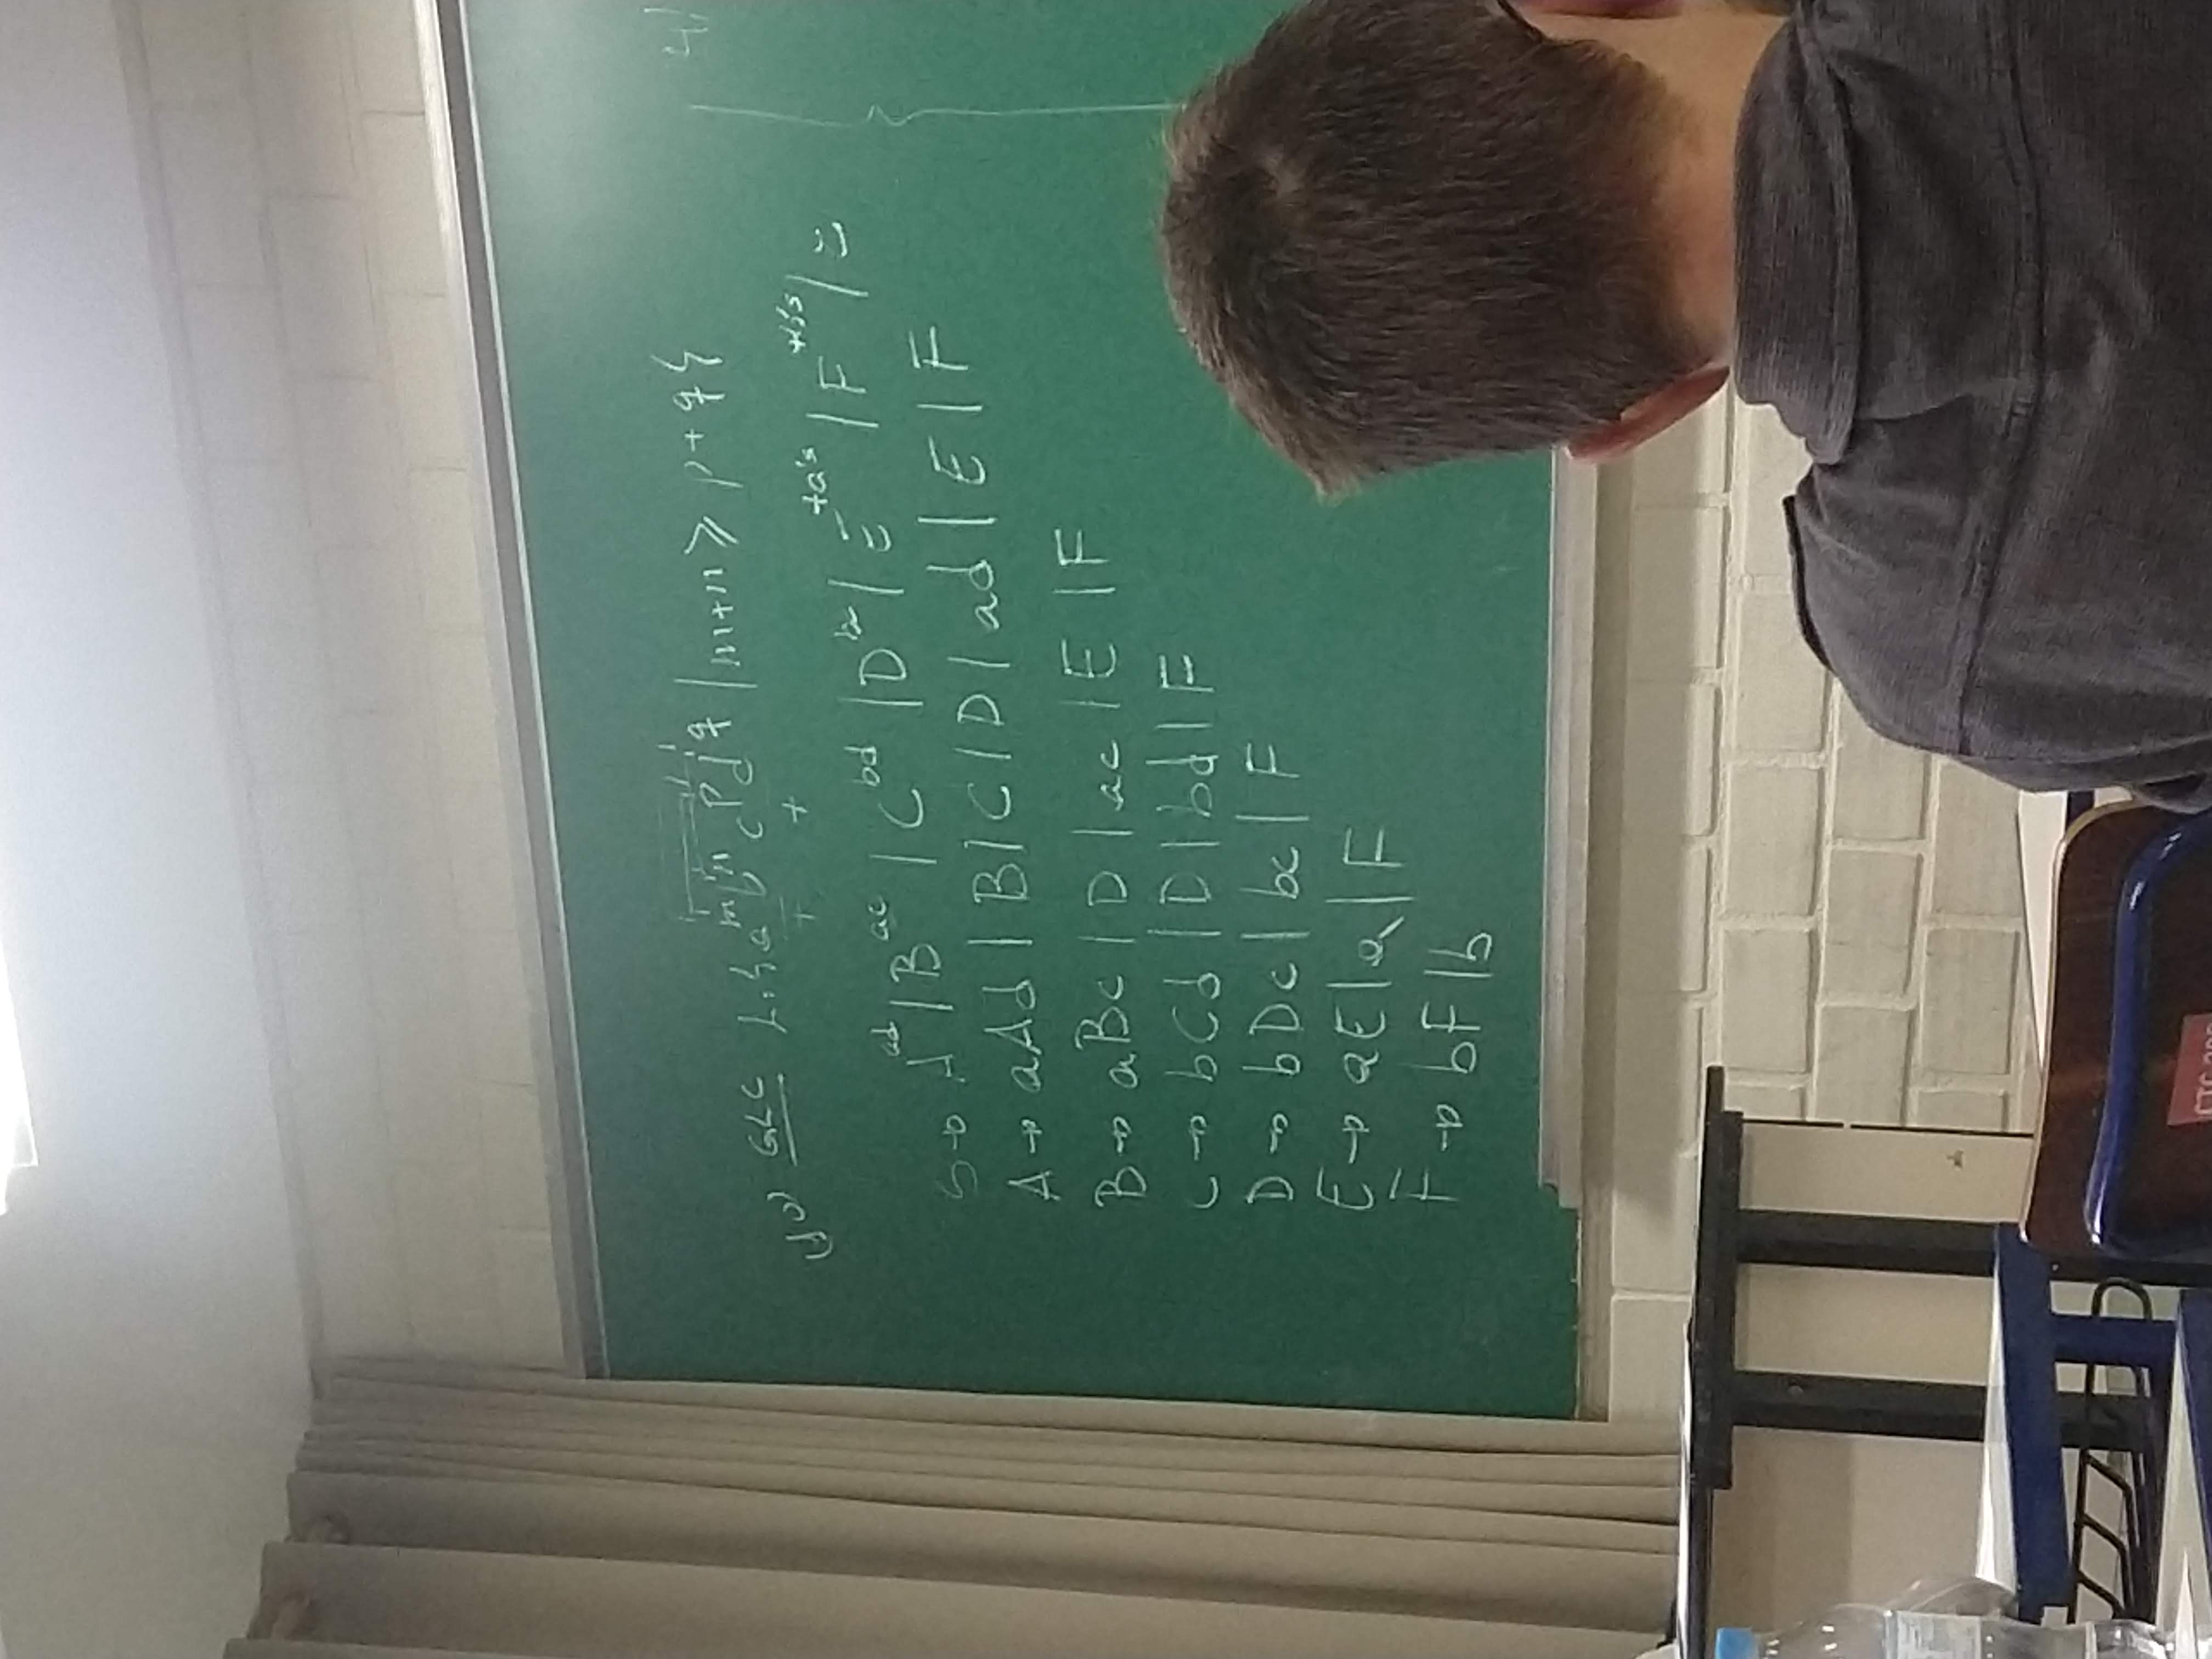 10) GLC L: {a^m b^n c^p d^q | m+n ≥ p+q}
+ +
S → A^ad | B^ac | C^bd | D^bc | E^+a's | F^+b's | ε
A → aAd | B | C | D | ad | E | F
B → aBc | D | ac | E | F
C → bCd | D | bd | F
D → bDc | bc | F
E → aE | a | F
F → bF | b
4)